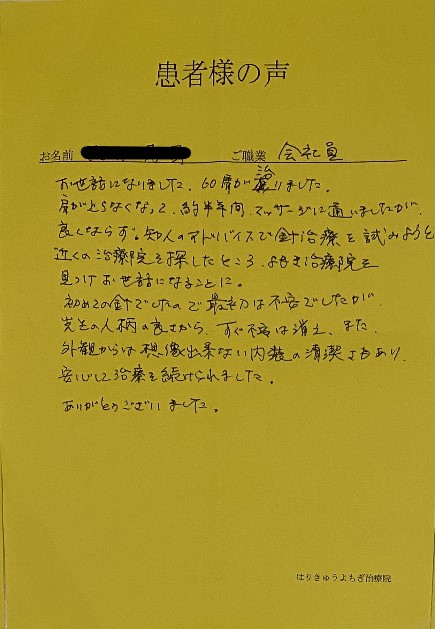 患者様の声
お名前 ご職業 会社員
お世話になりました。60肩が治りました。
肩が上らなくなって、約半年間、マッサージに通いましたが、
良くならず。知人のアドバイスで針治療を試みようと
近くの治療院を探したところ、よもぎ治療院を
見つけお世話になることに。
初めての針でしたので最初は不安でしたが
先生の人柄の良さから、すぐ不安は消え、また、
外観からは想像出来ない内装の清潔さもあり、
安心して治療を続けられました。
ありがとうございました。
はりきゅうよもぎ治療院